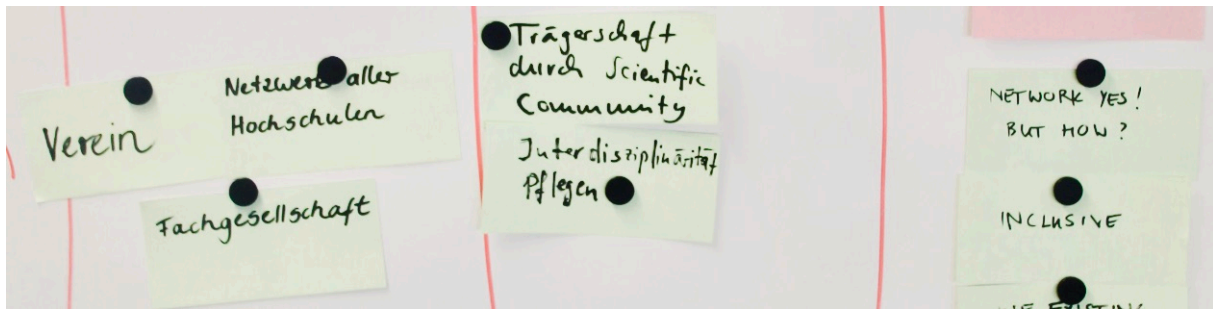 Verein
Netzwerk aller
Hochschulen
Fachgesellschaft
Trägerschaft
durch Scientific
Community
Interdisziplinärität
Pflegen
NETWORK YES!
BUT HOW?
INCLUSIVE
EXISTING